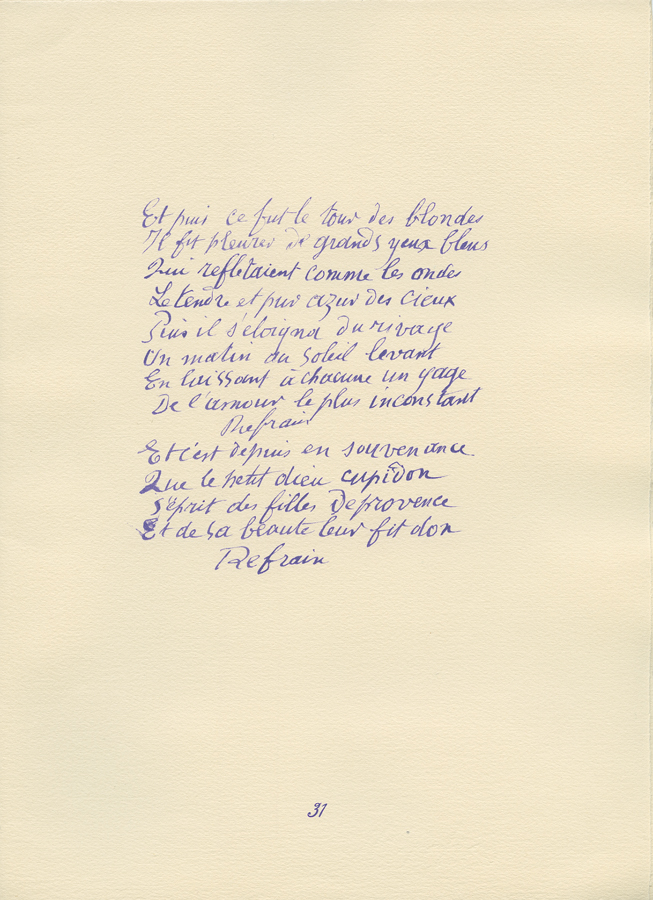 Et puis ce fut le tour des blondes
Il fit pleurer de grands yeux bleus
Qui reflétaient comme les ondes
Le tendre et pur azur des cieux
Puis il s'éloigna du rivage
Un matin au soleil levant
En laissant à chacune un gage
De l'amour le plus inconstant
Refrain
Et c'est depuis en souvenance
Que le petit dieu cupidon
S'éprit des filles De provence
Et de sa beauté leur fit don
Refrain
31